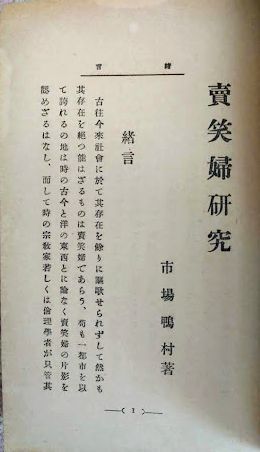 緒言
賣笑婦研究
市場鴨村著
緒言
古往今來社會に於て其存在を餘りに謳歌せられずして然かも
其存在を絕つ能はざるものは賣笑婦であらう、苟も一都市を以
て誇れるの地は時の古今と洋の東西とに論なく賣笑婦の片影を
認めざるはなし、而して時の宗敎家若しくは倫理學者が只管其
—( 1 )—